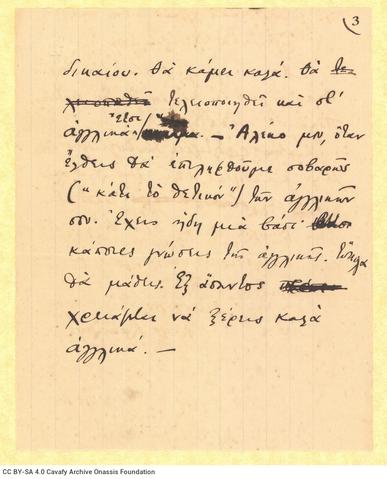 3
δικαίου. Θὰ κάμει καλά. Θὰ
τελειοποιηθεῖ καὶ στ'
Ἔτσι
ἀγγλικὰ — Ἀλέκο μου, ὅταν
ἔλθεις θὰ ἐπιληφθοῦμε σοβαρῶς
("κάτι τὸ θετικόν") τῶν ἀγγλικῶν
σου. Ἔχεις ἤδη μιὰ βάσι
κάποιες γνώσεις τῆς ἀγγλικῆς.
θὰ μάθεις. Ἐξ ἅπαντος
χρειάζεται νὰ ξέρεις καλὰ
ἀγγλικά. —
CC BY-SA 4.0 Cavafy Archive Onassis Foundation